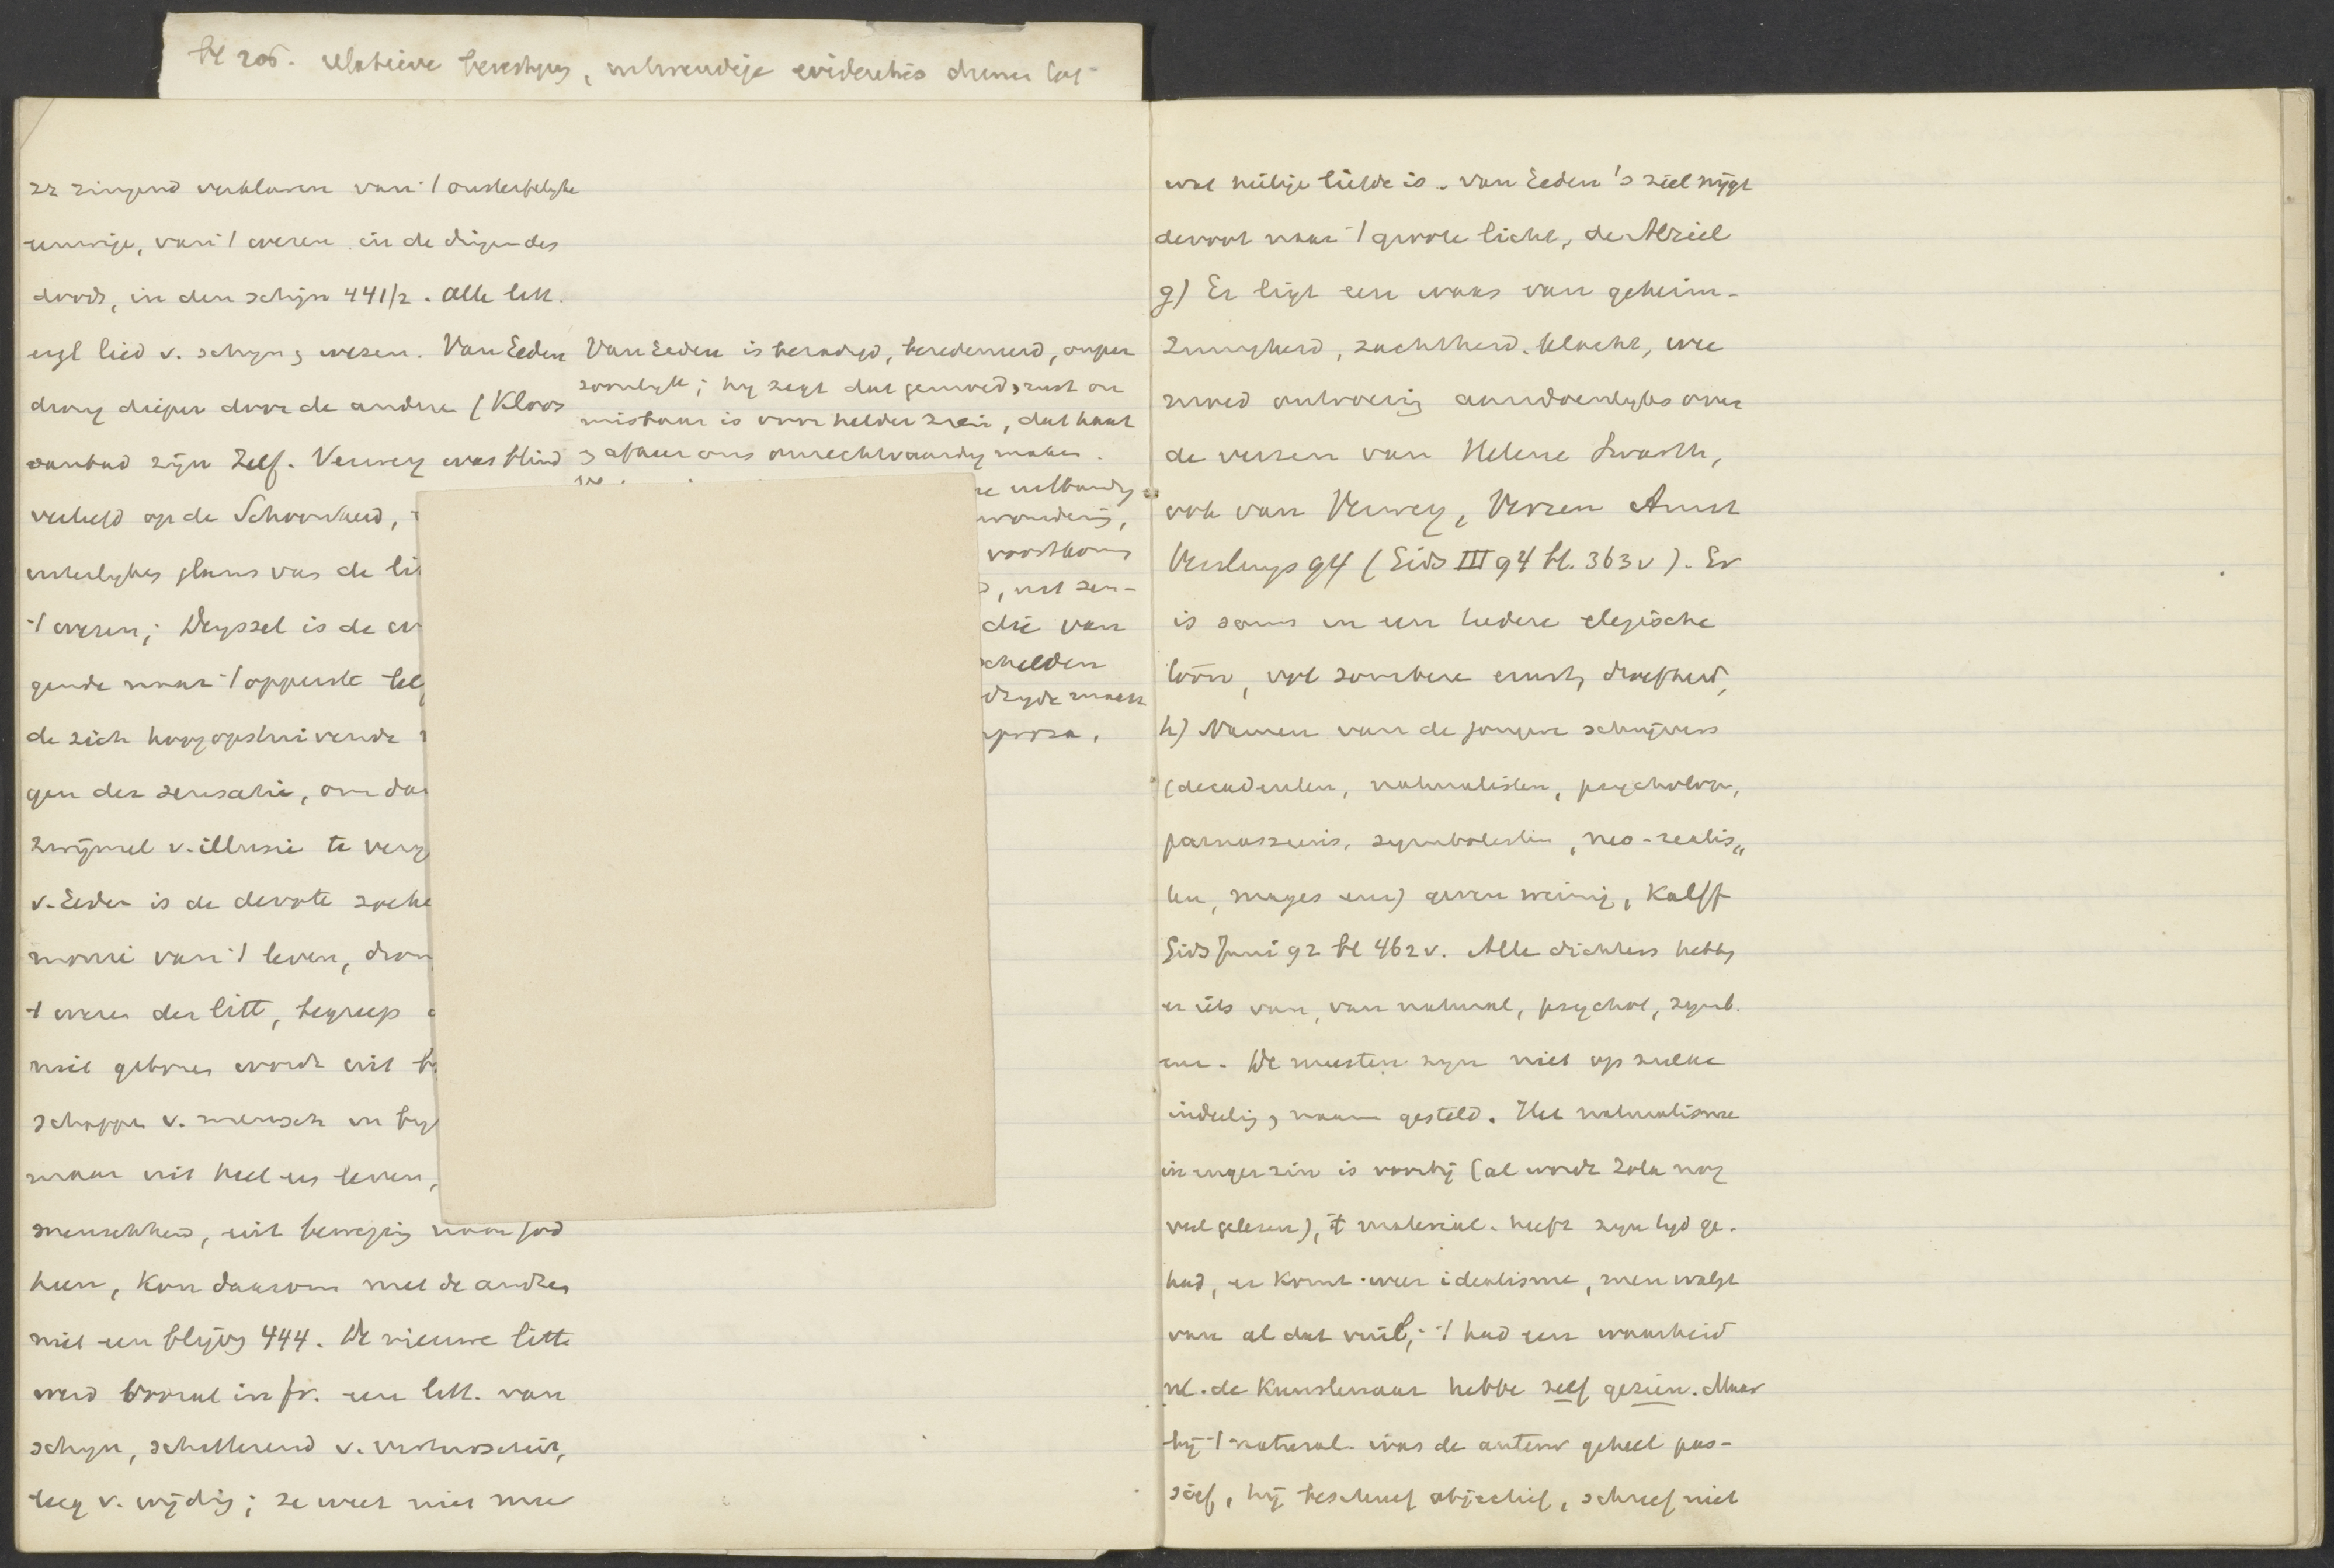 bl 205. relatieve
zz zingend verklaren van 't onsterfelyke
eenwige, van 't wezen in de dingen des
doods, in den schijn 441/2. Alle litt.
zegt lied v. schyn & wezen. Van Eeden
drong dieper door de andere (Kloos
aanbad zijn Zelf. Verwey was blind
verliefd op de Schoonheid,
uiterlykes glans van de
't wezen; Deyssel is de
gende naar 't opperste
de zich hoog opstuivende
gen der sensatie, om
zwijmel v. illusie te
v. Eeden is de devote
monie van 't leven,
t wezen der litt, begreep
niet geboren wordt uit
schappen v. mensch en
maar uit heel een leven,
menschheid, uit beweging naar God
heen, kon daarom met de andren
niet een blijven 444. De nieuwe litt
werd vooral in fr. een litt. van
schyn, schitterend v. virtuositeit,
leeg v. wijding; ze weet niet mee
Van Eeden is bezadigd, beredeneerd, onper
soonlyk; hy zegt dat gemoedsrust on
misbaar is voor helder zien, dat haat
& afkeer ons onrechtvaardig maken.
verwondering,
voortkomt
, met zen-
die van
schelden
proza.
wat heilige liefde is. Van Eeden's ziel nijgt
devoot naar 't groote licht, de Alziel
g) Er ligt een waas van geheim-
zinnigheid, zachtheid. klacht, wee
moed ontroering aandoenlyks over
de verzen van Helene Swarth,
ook van Verwey, Verzen Amst
Versluys 94 (Gids III 94 bl. 363v). Er
is soms in een teedere elegische
toon, vol sombere ernst, droefheid,
h) Namen van de jongere schrijvers
(decadenten, naturalisten, psycholog,
parnassiens, symbolisten, neo-realis„
ten, mages enz) geven weinig, Kalff
Gids Juni 92 bl 462v. Alle dichters hebben
er iets van, van natural, psychol, symb.
enz. De meesten zyn niet op zulke
indeeling & naam gesteld. Het naturalisme
in enger zin is voorbij (al wordt Zola nog
veel gelezen), 't material. heeft zyn tyd ge-
had, er komt weer idealisme, men walgt
van al dat vuil; 't had een waarheid
nl. de kunstenaar hebbe zelf gezien. Maar
bij 't natural. was de auteur geheel pas-
sief, hij beschreef objectief, schreef niet